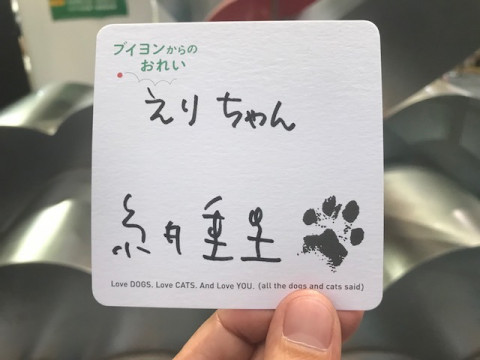 ブイヨンからの
おれい
えりちゃん
糸井重里
Love DOGS. Love CATS. And Love YOU. (all the dogs and cats said)